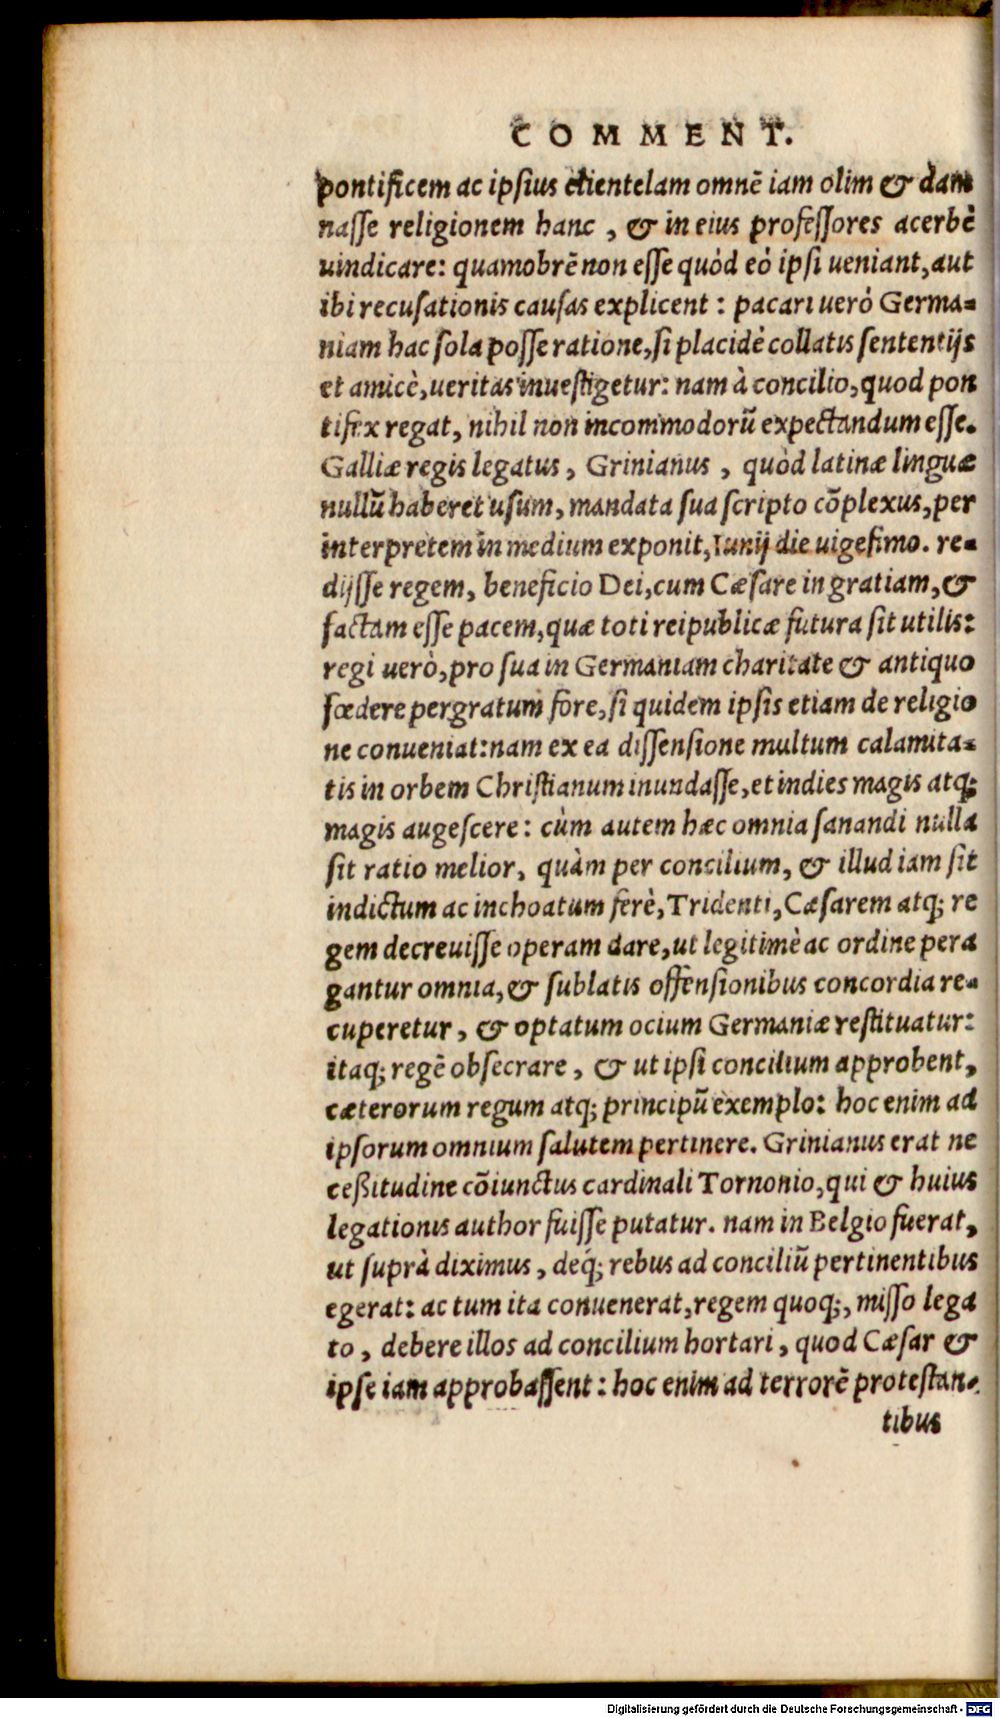 COMMENT.
pontificem ac ipſius clientelam omnē iam olim & dam
naſſe religionem hanc, & in eius profeſſores acerbè
uindicare: quamobrē non eſſe quòd eò ipſi ueniant, aut
ibi recuſationis cauſas explicent: pacari uerò Germa-
niam hac ſola poſſe ratione, ſi placidè collatis ſententijs
et amicè, ueritas inueſtigetur: nam à concilio, quod pon
tifex regat, nihil non incommodorũ expectandum eſſe.
Galliæ regis legatus, Grinianus, quòd latinæ linguæ
nullũ haberet uſum, mandata ſua ſcripto cõplexus, per
interpretem in medium exponit, Iunij die uigeſimo. re-
dijſſe regem, beneficio Dei, cum Cæſare in gratiam, &
factam eſſe pacem, quæ toti reipublicæ futura ſit utilis:
regi uerò, pro ſua in Germaniam charitate & antiquo
fœdere pergratum fore, ſi quidem ipſis etiam de religio
ne conueniat: nam ex ea diſſenſione multum calamita-
tis in orbem Chriſtianum inundaſſe, et indies magis atq;
magis augeſcere: cùm autem hæc omnia ſanandi nulla
ſit ratio melior, quàm per concilium, & illud iam ſit
indictum ac inchoatum ferè, Tridenti, Cæſarem atq; re
gem decreuiſſe operam dare, ut legitimè ac ordine pera
gantur omnia, & ſublatis offenſionibus concordia re-
cuperetur, & optatum ocium Germaniæ reſtituatur:
itaq; regē obſecrare, & ut ipſi concilium approbent,
cæterorum regum atq; principũ exemplo: hoc enim ad
ipſorum omnium ſalutem pertinere. Grinianus erat ne
ceßitudine cõiunctus cardinali Tornonio, qui & huius
legationis author fuiſſe putatur. nam in Belgio fuerat,
ut ſuprà diximus, deq́; rebus ad conciliũ pertinentibus
egerat: ac tum ita conuenerat, regem quoq;, miſſo lega
to, debere illos ad concilium hortari, quod Cæſar &
ipſe iam approbaſſent: hoc enim ad terrorē proteſtan-
tibus
Digitalisierung gefördert durch die Deutsche Forschungsgemeinschaft - DFG